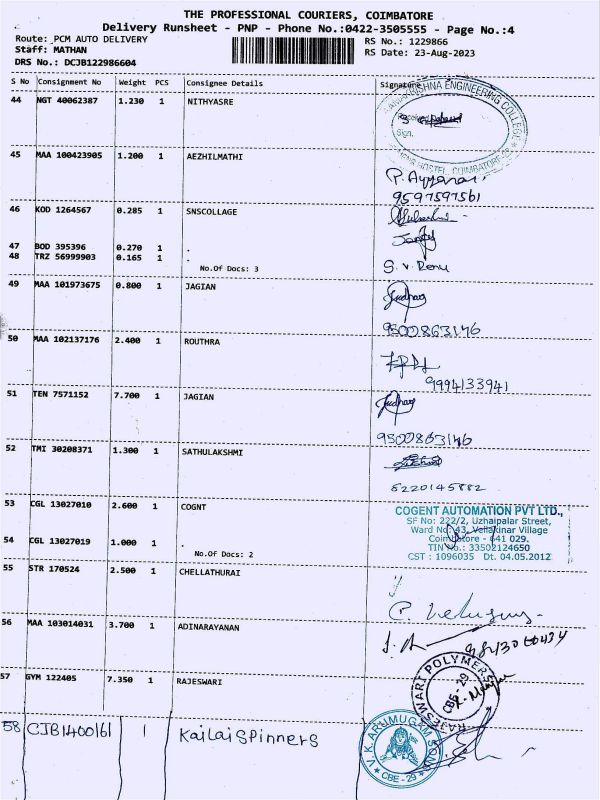 THE PROFESSIONAL COURIERS, COIMBATORE
Delivery Runsheet - PNP - Phone No.:0422-3505555 - Page No.:4
Route: PCM AUTO DELIVERY RS No.: 1229866
Staff: MATHAN RS Date: 23-Aug-2023
DRS No.: DCJB122986604
S No Consignment No Weight PCS Consignee Details Signature
44 NGT 40062387 1.230 1 NITHYASRE
ENGINEERING COLLEGE
Sign.
45 MAA 100423905 1.200 1 AEZHILMATHI
9597597561
46 KOD 1264567 0.285 1 SNSCOLLAGE
47 BOD 395396 0.270 1 .
48 TRZ 56999903 0.165 1 .
No.Of Docs: 3
S. V. Renu
49 MAA 101973675 0.800 1 JAGIAN
9500863146
50 MAA 102137176 2.400 1 ROUTHRA
9994133941
51 TEN 7571152 7.700 1 JAGIAN
9500863146
52 TMI 30208371 1.300 1 SATHULAKSHMI
53 CGL 13027010 2.600 1 COGNT
54 CGL 13027019 1.000 1 .
No.Of Docs: 2
COGENT AUTOMATION PVT LTD.,
SF No: 222/2, Uzhaipalar Street,
Ward No: 43, Vellakinar Village
Coimbatore - 641 029.
TIN No.: 33502124650
CST : 1096035 Dt. 04.05.2012
55 STR 170524 2.500 1 CHELLATHURAI
56 MAA 103014031 3.700 1 ADINARAYANAN
57 GYM 122405 7.350 1 RAJESWARI
RAJESWARI POLYMERS
CBE - 29
58 CJB1400161 1 Kailai Spinners
V. K. ARUMUGAM SONS
CBE - 29